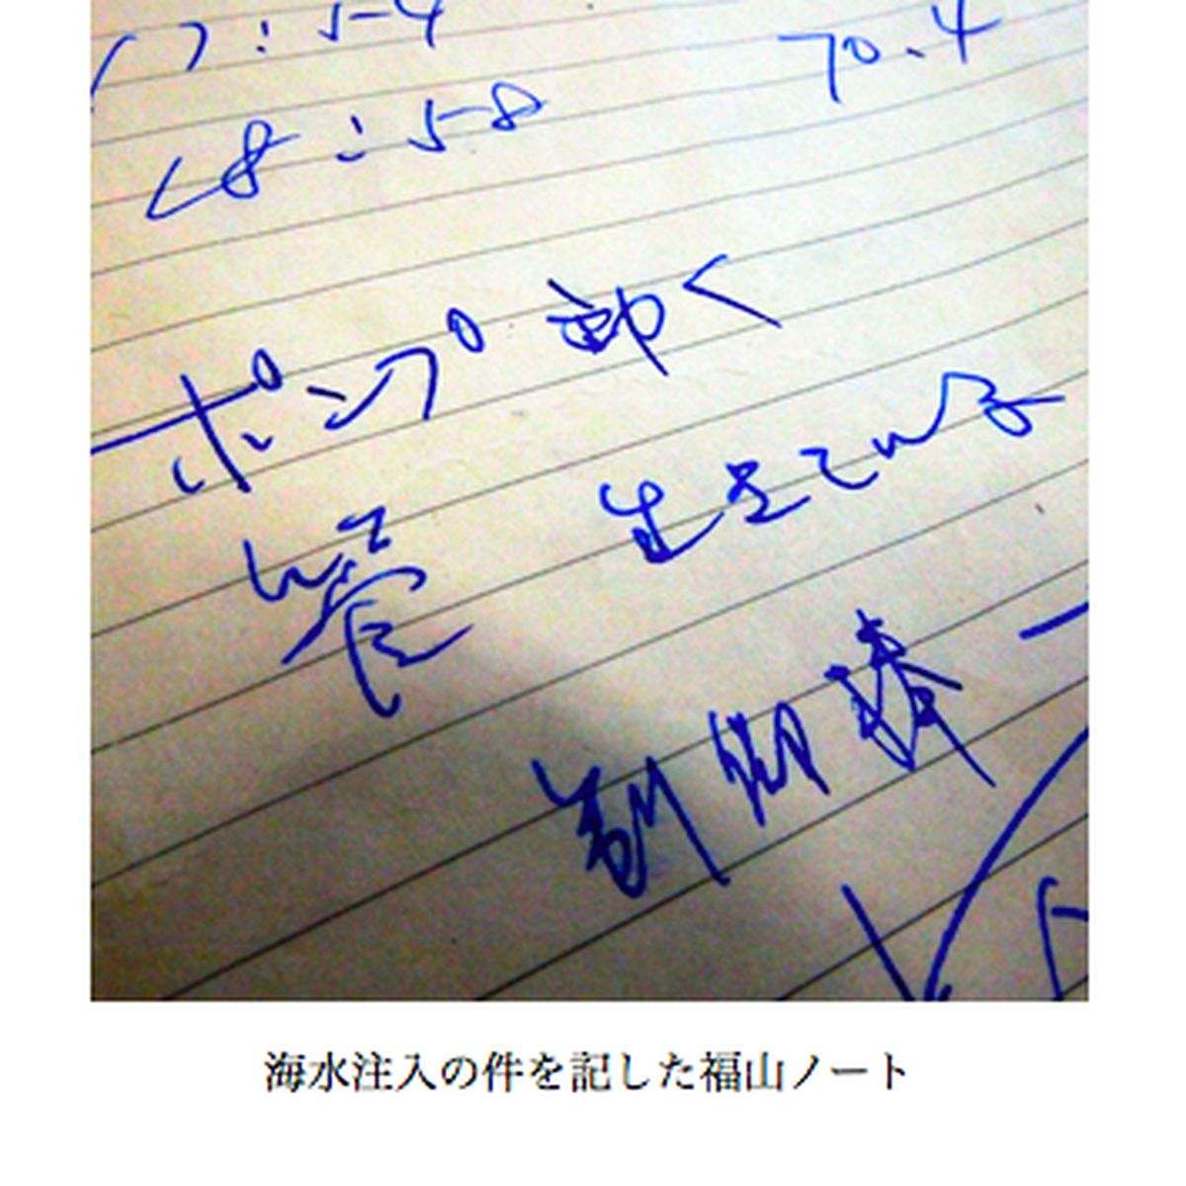 17:54 70.4
18:58
ポンプ動く
管 生きている
制御棒
海水注入の件を記した福山ノート